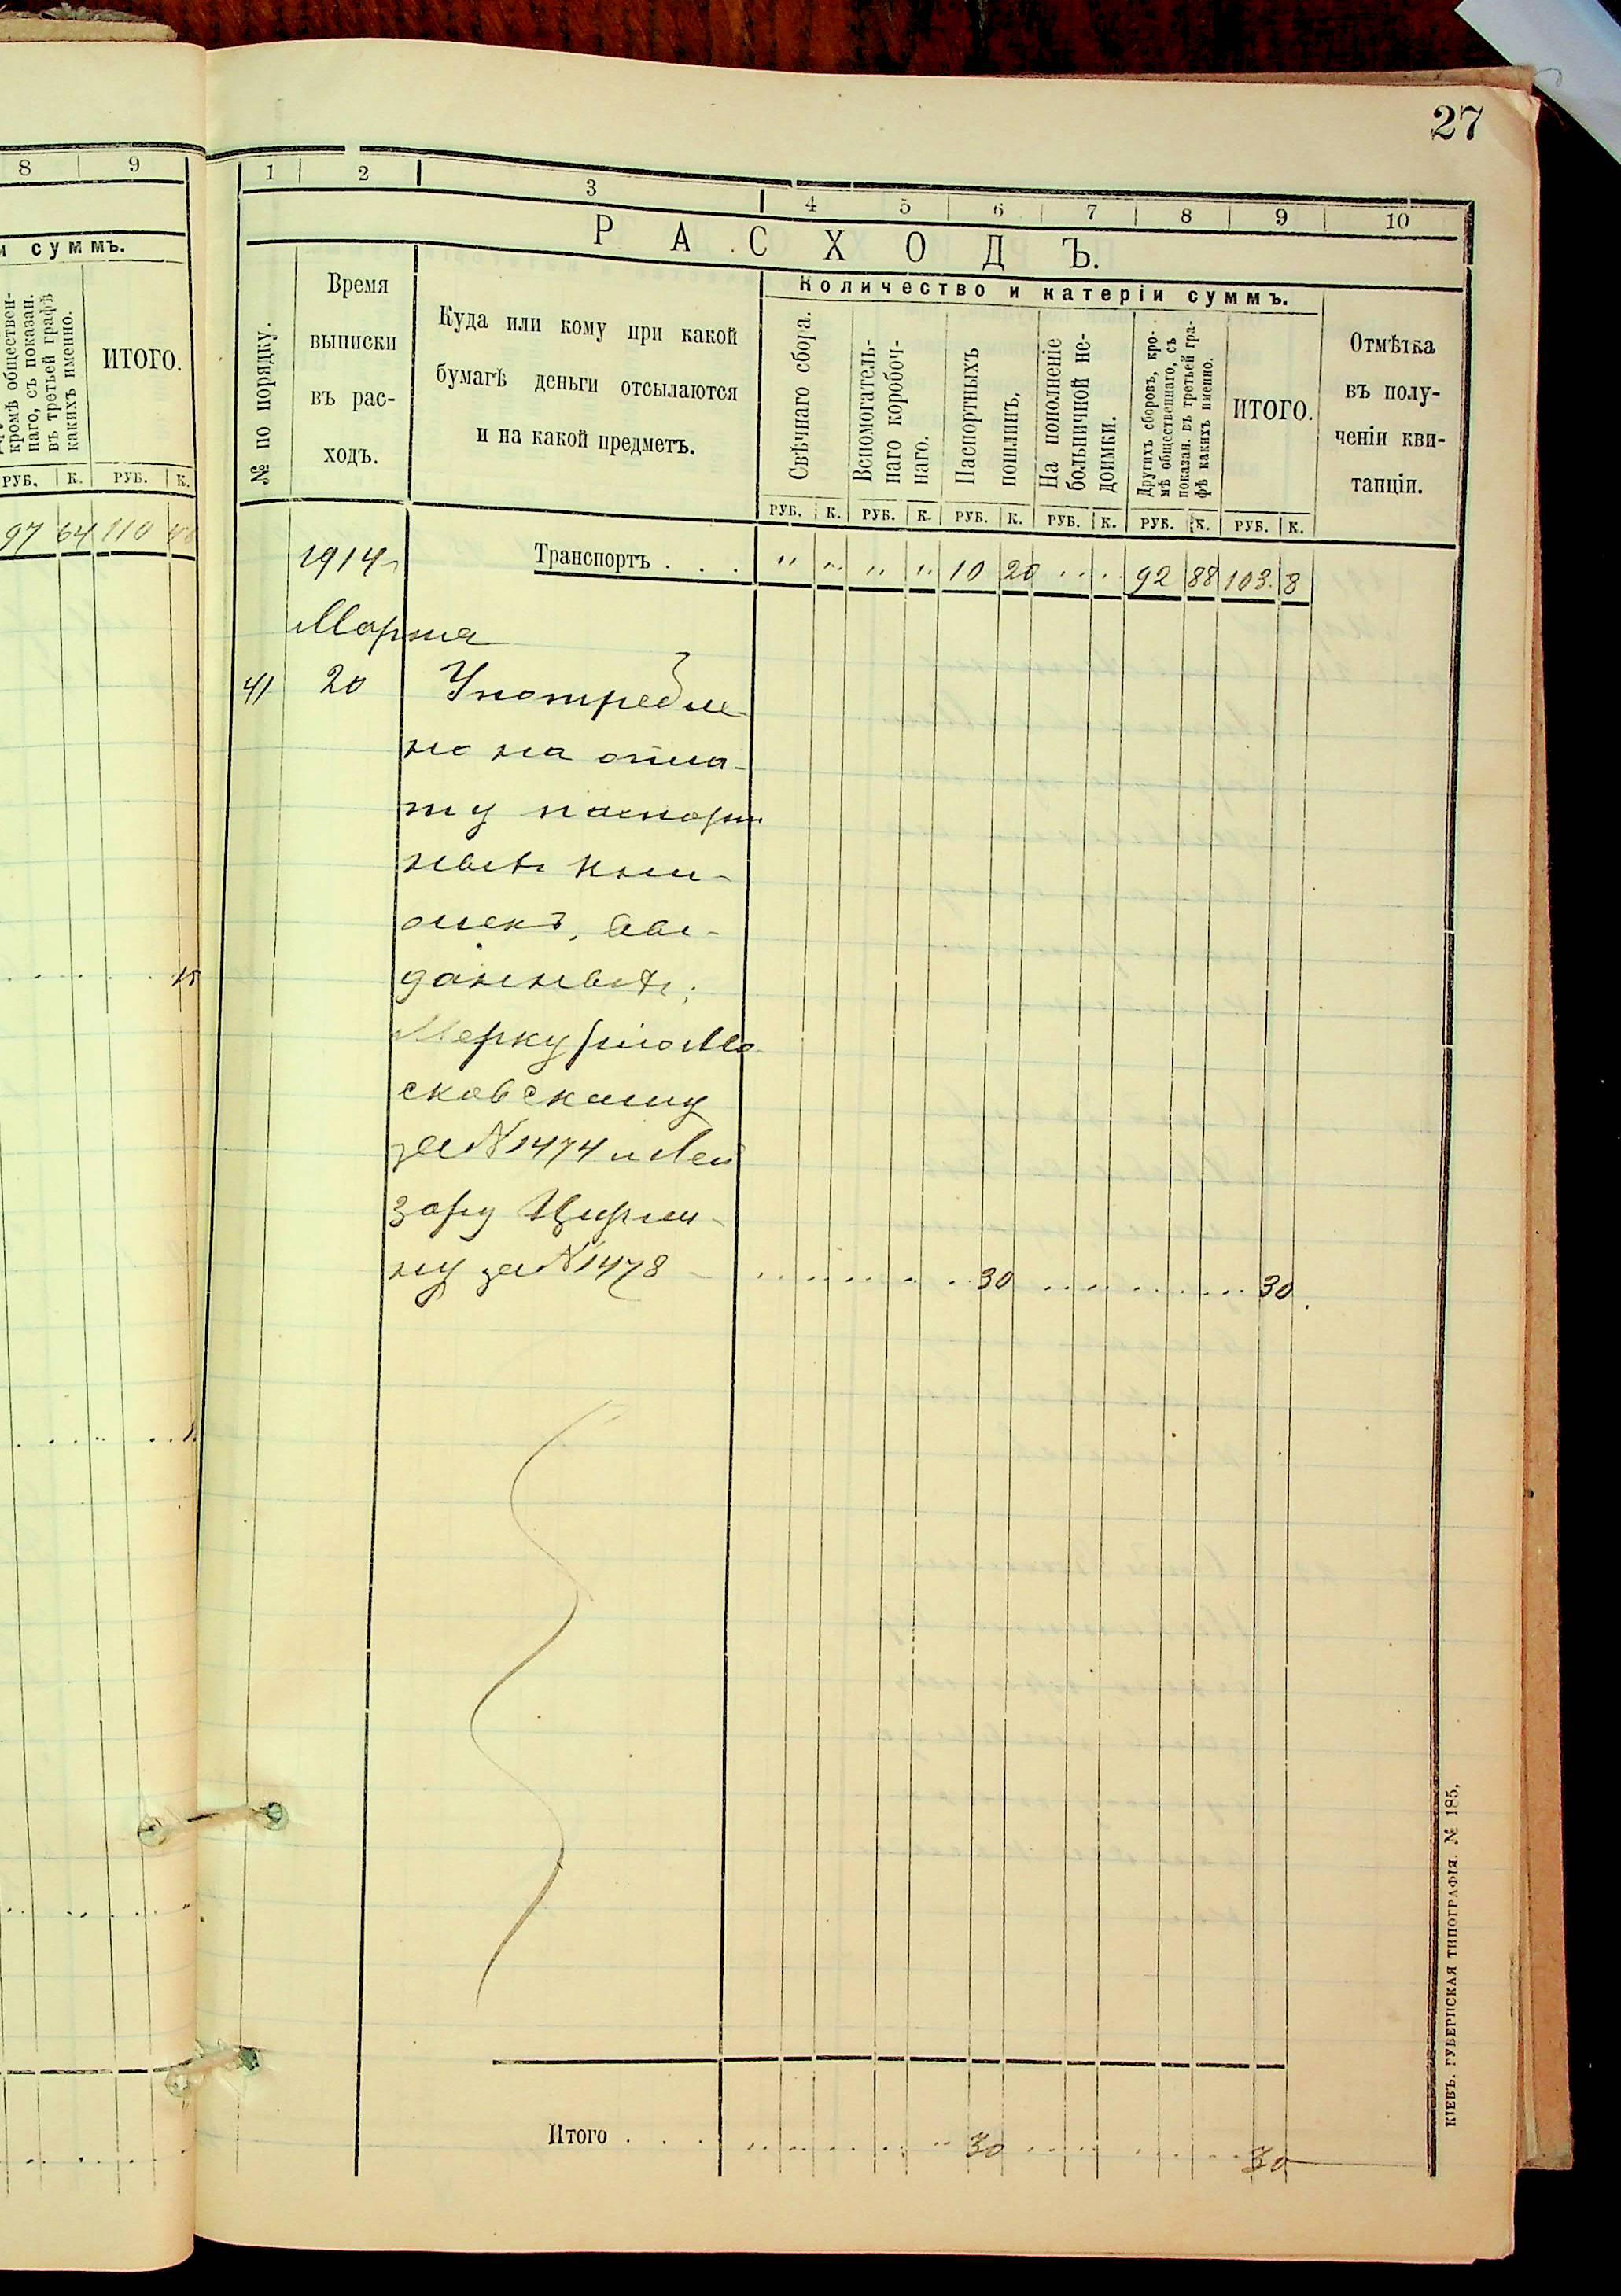 27
8 9
и суммъ.
кромѣ обществен-
наго, съ показан.
въ третьей графѣ
какихъ именно.
ИТОГО.
РУБ. К. РУБ. К.
97 64 110
15
1 2 3 4 5 6 7 8 9 10
РАСХОДЪ.
№ по порядку.
Время
выписки
въ рас-
ходъ.
Куда или кому при какой
бумагѣ деньги отсылаются
и на какой предметъ.
Количество и катеріи суммъ.
Свѣчнаго сбора.
Вспомогатель-
наго коробоч-
наго.
Паспортныхъ
пошлинъ,
На пополненіе
больничной не-
доимки.
Другихъ сборовъ, кро-
мѣ общественнаго, съ
показан. въ третьей гра-
фѣ какихъ именно.
ИТОГО.
Отмѣтка
въ полу-
ченіи кви-
танціи.
РУБ. К. РУБ. К. РУБ. К. РУБ. К. РУБ. К. РУБ. К.
1914 Транспортъ . . . " " " " 10 20 " " 92 88 103 8
Марта
41 20 Употребле-
но на опла-
ту паспорт
ныхъ кни-
жекъ, вы-
данныхъ:
Меркурію Мо-
сковскому
за № 1474 и Лей
зору Цирли-
ну за № 1478 30 30
Итого . . . 30 30
КІЕВЪ. ГУБЕРНСКАЯ ТИПОГРАФІЯ. № 185.